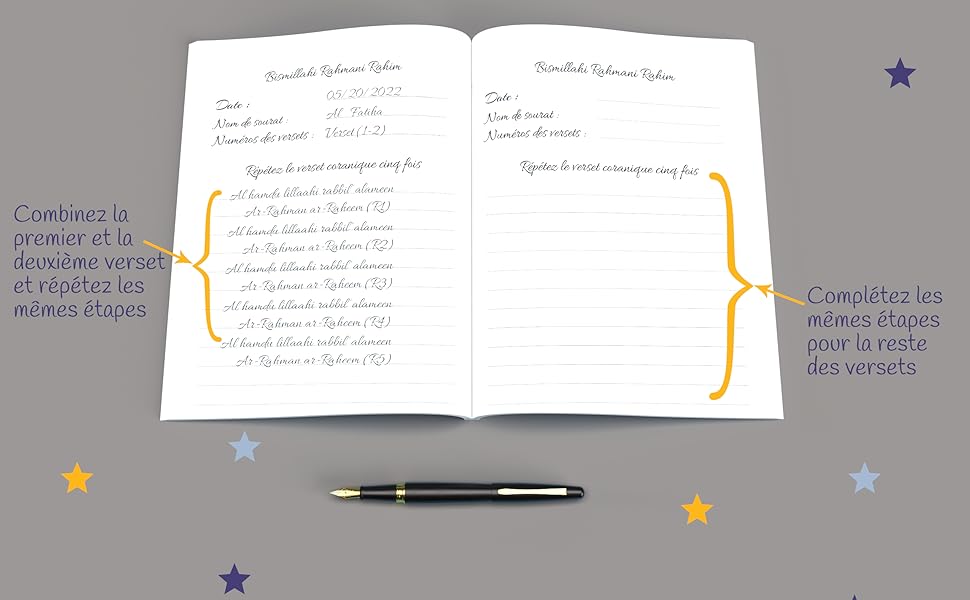 Bismillahi Rahmani Rahim
Date : 05/20/2022
Nom de sourat : Al Fatiha
Numéros des versets : Verset (1-2)
Répétez le verset coranique cinq fois
Al hamdu lillaahi rabbil alameen
Ar-Rahman ar-Raheem (R1)
Al hamdu lillaahi rabbil alameen
Ar-Rahman ar-Raheem (R2)
Al hamdu lillaahi rabbil alameen
Ar-Rahman ar-Raheem (R3)
Al hamdu lillaahi rabbil alameen
Ar-Rahman ar-Raheem (R4)
Al hamdu lillaahi rabbil alameen
Ar-Rahman ar-Raheem (R5)
Combinez la
premier et la
deuxième verset
et répétez les
mêmes étapes
Bismillahi Rahmani Rahim
Date :
Nom de sourat :
Numéros des versets :
Répétez le verset coranique cinq fois
Complétez les
mêmes étapes
pour la reste
des versets